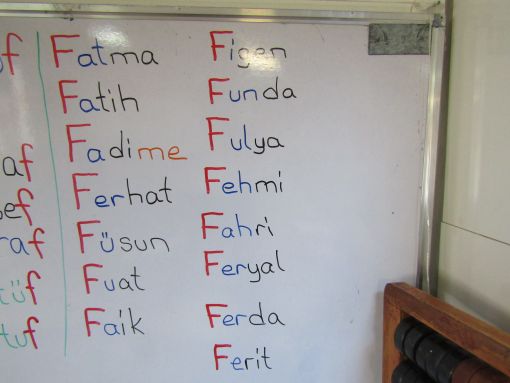 Fatma
Fatih
Fadime
Ferhat
Füsun
Fuat
Faik
Figen
Funda
Fulya
Fehmi
Fahri
Feryal
Ferda
Ferit